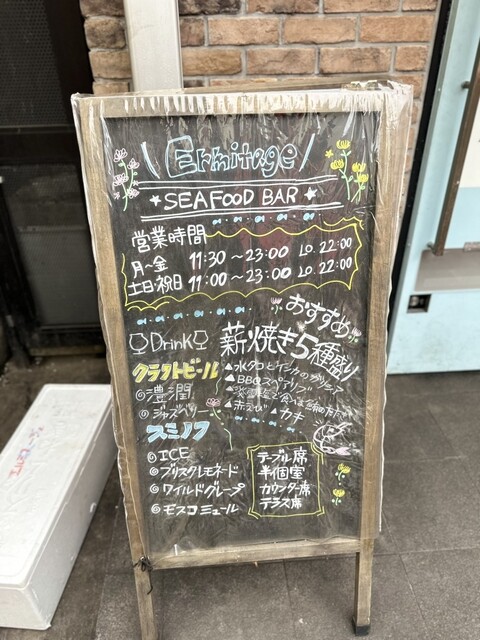 Ermitage
SEAFOOD BAR
営業時間
月〜金 11:30 〜 23:00 LO. 22:00
土日・祝日 11:00 〜 23:00 LO. 22:00
おすすめ
薪焼き5種盛り
▲水タコとイカのグリル
▲BBQスペアリブ
▲赤えび ▲カキ
Drink
クラフトビール
◎澧潤
◎ジャズベリー
スミノフ
◎ICE
◎ブリスクレモネード
◎ワイルドグレープ
◎モスコミュール
テーブル席
半個室
カウンター席
テラス席